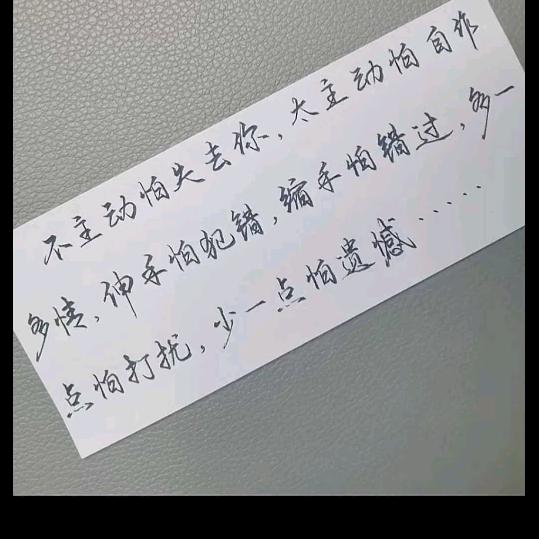 不主动怕失去你，太主动怕自作
多情，伸手怕犯错，缩手怕错过，多一
点怕打扰，少一点怕遗憾……